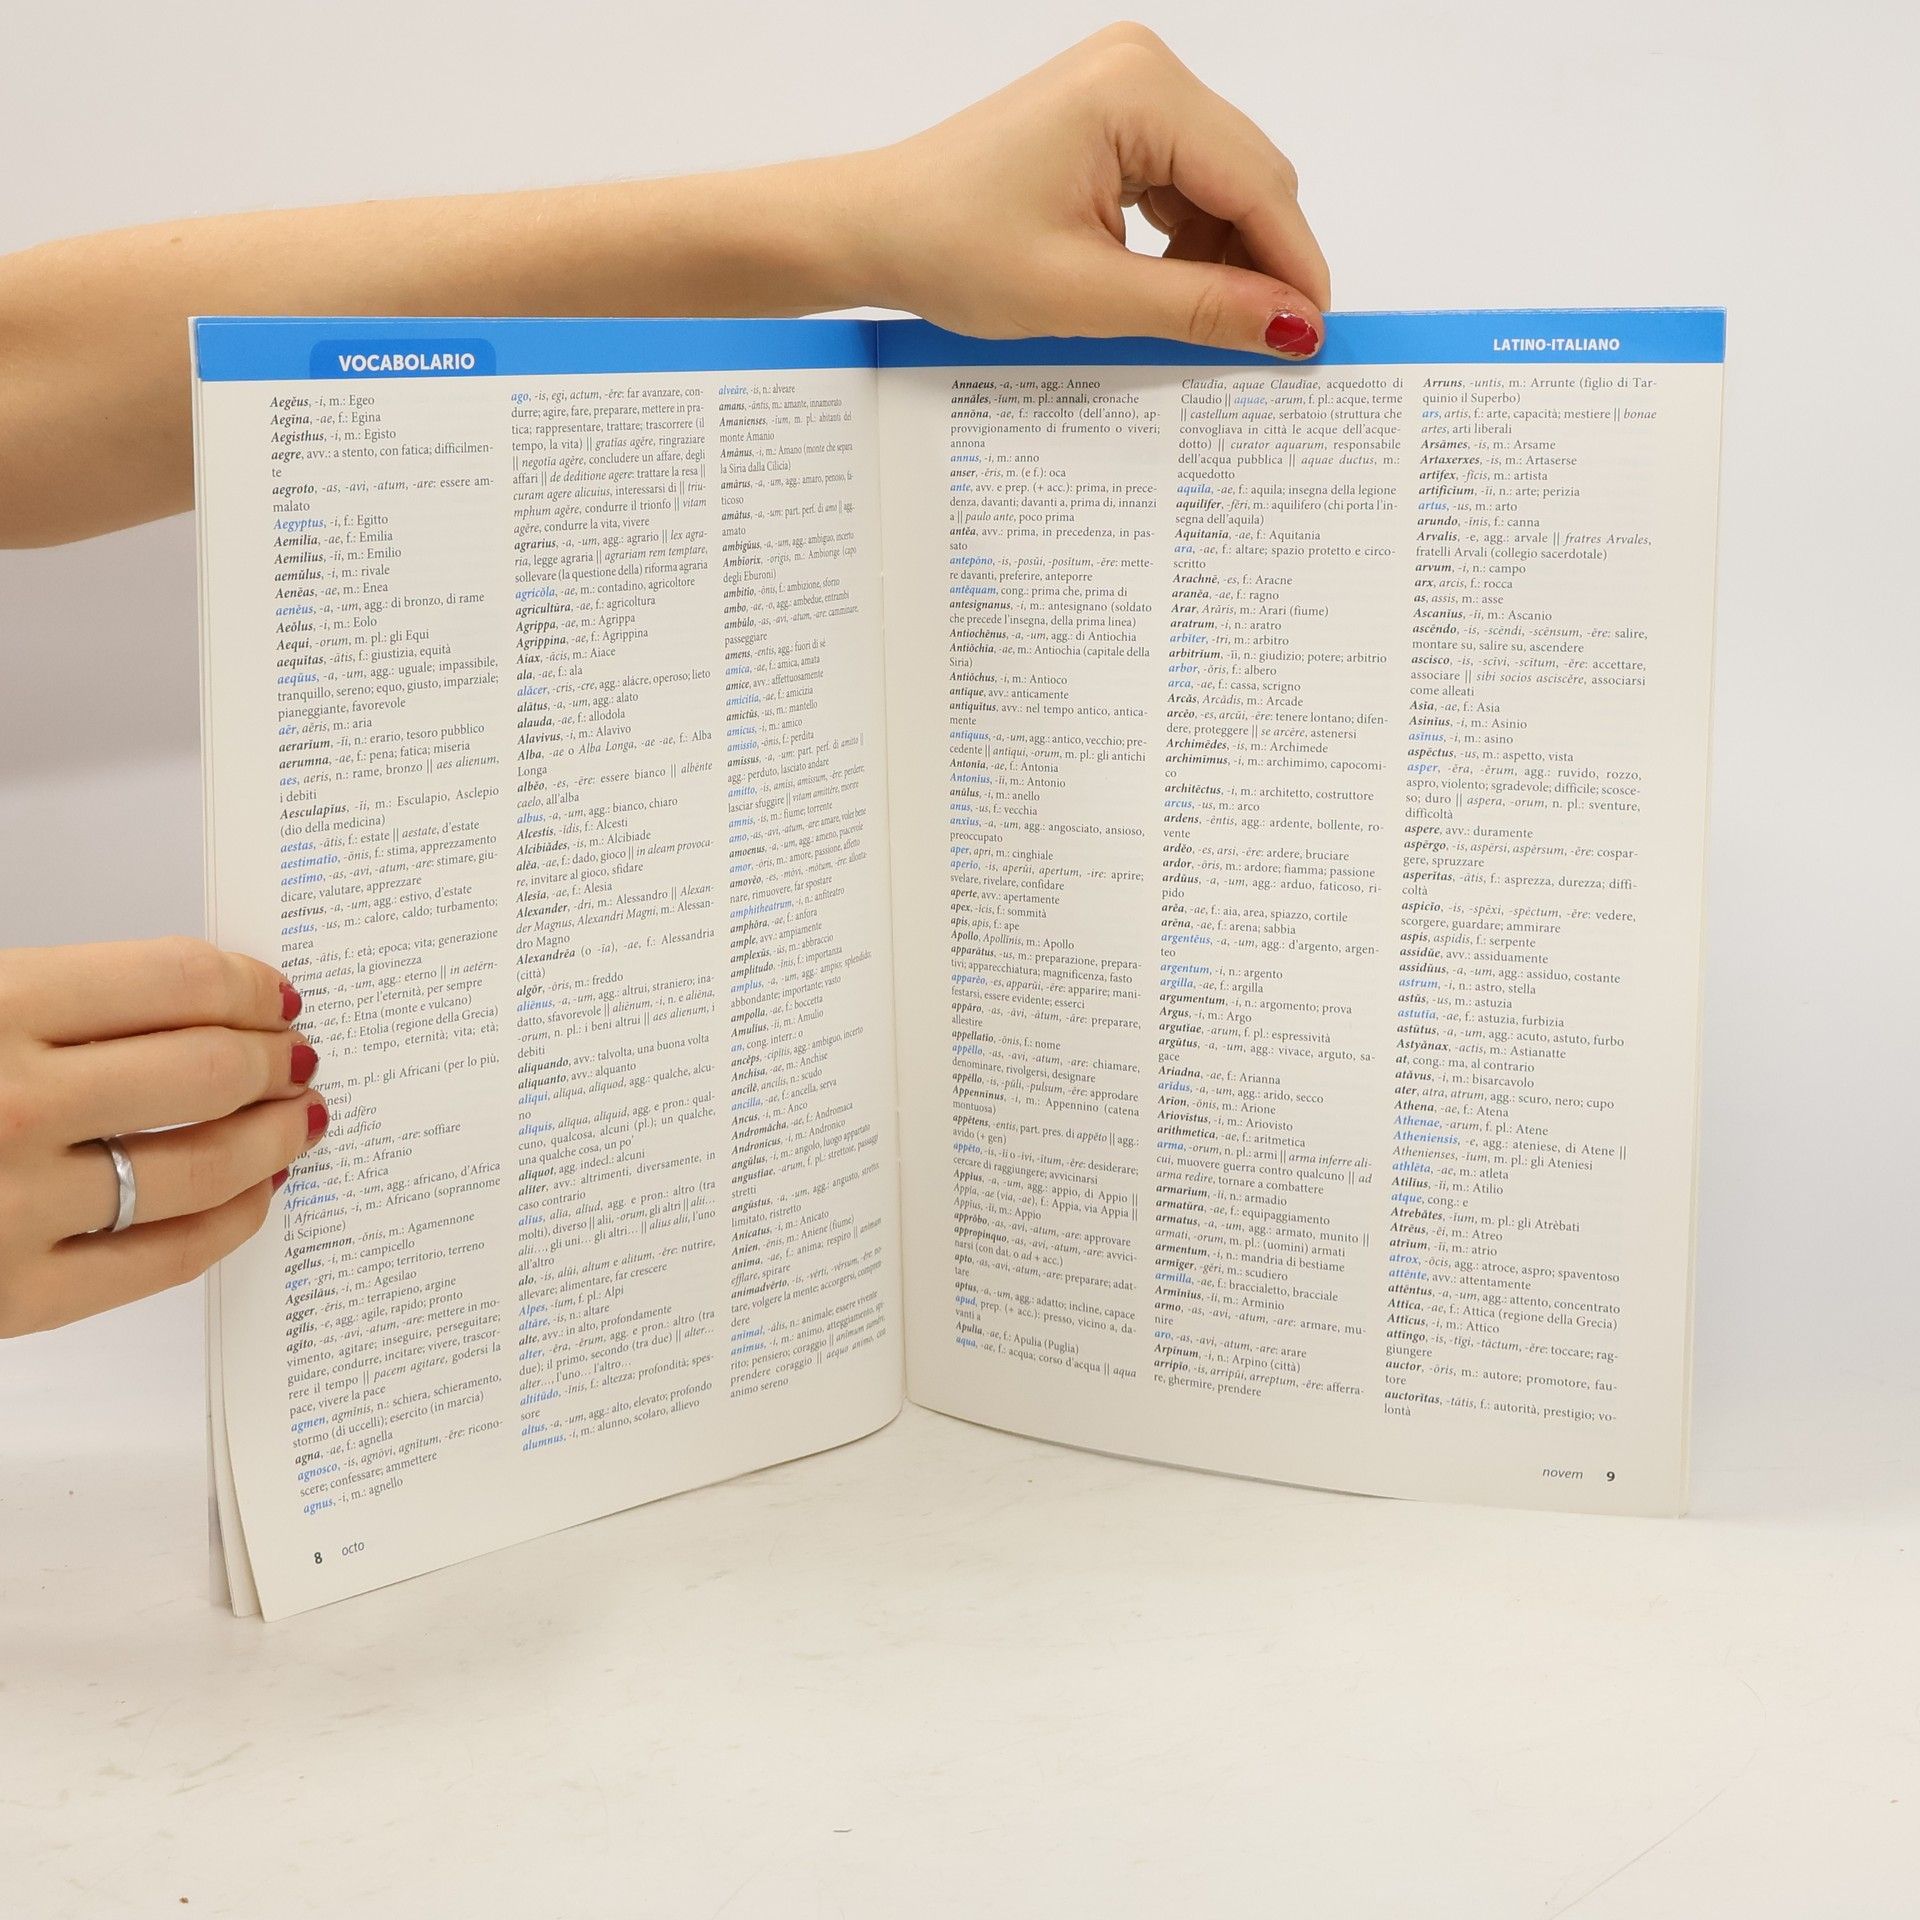 VOCABOLARIO
Aegēus, -i, m.: Egeo
Aegīna, -ae, f.: Egina
Aegisthus, -i, m.: Egisto
aegre, avv.: a stento, con fatica; difficilmen-
te
aegroto, -as, -avi, -atum, -are: essere am-
malato
Aegyptus, -i, f.: Egitto
Aemilĭa, -ae, f.: Emilia
Aemilĭus, -ĭi, m.: Emilio
aemŭlus, -i, m.: rivale
Aenēas, -ae, m.: Enea
aenĕus, -a, -um, agg.: di bronzo, di rame
Aeŏlus, -i, m.: Eolo
Aequi, -orum, m. pl.: gli Equi
aequĭtas, -ātis, f.: giustizia, equità
aeqŭus, -a, -um, agg.: uguale; impassibile,
tranquillo, sereno; equo, giusto, imparziale;
pianeggiante, favorevole
aēr, aĕris, m.: aria
aerarĭum, -ĭi, n.: erario, tesoro pubblico
aerumna, -ae, f.: pena; fatica; miseria
aes, aeris, n.: rame, bronzo || aes alienum,
i debiti
Aesculapĭus, -ĭi, m.: Esculapio, Asclepio
(dio della medicina)
aestas, -ātis, f.: estate || aestate, d'estate
aestimatĭo, -ōnis, f.: stima, apprezzamento
aestĭmo, -as, -avi, -atum, -are: stimare, giu-
dicare, valutare, apprezzare
aestivus, -a, -um, agg.: estivo, d'estate
aestus, -us, m.: calore, caldo; turbamento;
marea
aetas, -ātis, f.: età; epoca; vita; generazione
prima aetas, la giovinezza
-a, -um, agg.: eterno || in aetĕrn-
in eterno, per l'eternità, per sempre
-ae, f.: Etna (monte e vulcano)
-ae, f.: Etolia (regione della Grecia)
-i, n.: tempo, eternità; vita; età;
m. pl.: gli Africani (per lo più,
adfĕro
vedi adficio
-as, -avi, -atum, -are: soffiare
Afranĭus, -ĭi, m.: Afranio
Afrĭca, -ae, f.: Africa
Africānus, -a, -um, agg.: africano, d'Africa
|| Africānus, -i, m.: Africano (soprannome
di Scipione)
Agamemnon, -ŏnis, m.: Agamennone
agellus, -i, m.: campicello
ager, -gri, m.: campo; territorio, terreno
Agesilāus, -i, m.: Agesilao
agger, -ĕris, m.: terrapieno, argine
agĭlis, -e, agg.: agile, rapido; pronto
agĭto, -as, -avi, -atum, -are: mettere in mo-
vimento, agitare; inseguire, perseguitare;
guidare, condurre, incitare; vivere, trascor-
rere il tempo || pacem agitare, godersi la
pace, vivere la pace
agmen, agmĭnis, n.: schiera, schieramento,
stormo (di uccelli); esercito (in marcia)
agna, -ae, f.: agnella
agnosco, -is, agnōvi, agnĭtum, -ĕre: ricono-
scere; confessare; ammettere
agnus, -i, m.: agnello
8 octo
ago, -is, egi, actum, -ĕre: far avanzare, con-
durre; agire, fare, preparare, mettere in pra-
tica; rappresentare, trattare; trascorrere (il
tempo, la vita) || gratĭas agĕre, ringraziare
|| negotĭa agĕre, concludere un affare, degli
affari || de deditione agere: trattare la resa ||
curam agere alicuius, interessarsi di || triu-
mphum agĕre, condurre il trionfo || vitam
agĕre, condurre la vita, vivere
agrarĭus, -a, -um, agg.: agrario || lex agra-
rĭa, legge agraria || agrariam rem temptare,
sollevare (la questione della) riforma agraria
agricŏla, -ae, m.: contadino, agricoltore
agricultūra, -ae, f.: agricoltura
Agrippa, -ae, m.: Agrippa
Agrippina, -ae, f.: Agrippina
Aiax, -ācis, m.: Aiace
ala, -ae, f.: ala
alăcer, -cris, -cre, agg.: alàcre, operoso; lieto
alātus, -a, -um, agg.: alato
alauda, -ae, f.: allodola
Alavivus, -i, m.: Alavivo
Alba, -ae o Alba Longa, -ae -ae, f.: Alba
Longa
albĕo, -es, -ēre: essere bianco || albente
caelo, all'alba
albus, -a, -um, agg.: bianco, chiaro
Alcestis, -ĭdis, f.: Alcesti
Alcibiădes, -is, m.: Alcibiade
alĕa, -ae, f.: dado, gioco || in aleam provoca-
re, invitare al gioco, sfidare
Alesĭa, -ae, f.: Alesia
Alexander, -dri, m.: Alessandro || Alexan-
der Magnus, Alexandri Magni, m.: Alessan-
dro Magno
Alexandrēa (o -īa), -ae, f.: Alessandria
(città)
algŏr, -ōris, m.: freddo
aliēnus, -a, -um, agg.: altrui, straniero; ina-
datto, sfavorevole || aliēnum, -i, n. e aliēna,
-orum, n. pl.: i beni altrui || aes alienum, i
debiti
aliquando, avv.: talvolta, una buona volta
aliquanto, avv.: alquanto
aliqui, aliqua, aliquod, agg.: qualche, alcu-
no
aliquis, aliqua, aliquid, agg. e pron.: qual-
cuno, qualcosa, alcuni (pl.); un qualche,
una qualche cosa, un po'
aliquot, agg. indecl.: alcuni
alĭter, avv.: altrimenti, diversamente, in
caso contrario
alĭus, alĭa, alĭud, agg. e pron.: altro (tra
molti), diverso || alii, -orum, gli altri || alii…
alii…, gli uni… gli altri… || alius alii, l'uno
all'altro
alo, -is, alŭi, altum e alitum, -ĕre: nutrire,
allevare; alimentare, far crescere
Alpes, -ĭum, f. pl.: Alpi
altāre, -is, n.: altare
alte, avv.: in alto, profondamente
alter, -ĕra, -ĕrum, agg. e pron.: altro (tra
due); il primo, secondo (tra due) || alter…
alter…, l'uno… l'altro…
altitūdo, -ĭnis, f.: altezza; profondità; spes-
sore
altus, -a, -um, agg.: alto, elevato; profondo
alumnus, -i, m.: alunno, scolaro, allievo
alveāre, -is, n.: alveare
amans, -āntis, m.: amante, innamorato
Amanienses, -ĭum, m. pl.: abitanti del
monte Amanio
Amānus, -i, m.: Amano (monte che separa
la Siria dalla Cilicia)
amārus, -a, -um, agg.: amaro, penoso, fa-
ticoso
amātus, -a, -um: part. perf. di amo || agg.:
amato
ambigŭus, -a, -um, agg.: ambiguo, incerto
Ambĭorix, -origis, m.: Ambiorige (capo
degli Eburoni)
ambitĭo, -ōnis, f.: ambizione, sforzo
ambo, -ae, -o, agg.: ambedue, entrambi
ambŭlo, -as, -avi, -atum, -are: camminare,
passeggiare
amens, -entis, agg.: fuori di sé
amica, -ae, f.: amica, amata
amice, avv.: affettuosamente
amicitĭa, -ae, f.: amicizia
amictŭs, -us, m.: mantello
amicus, -i, m.: amico
amissĭo, -ōnis, f.: perdita
amissus, -a, -um: part. perf. di amitto ||
agg.: perduto, lasciato andare
amitto, -is, amisi, amissum, -ĕre: perdere,
lasciar sfuggire || vitam amittĕre, morire
amnis, -is, m.: fiume; torrente
amo, -as, -avi, -atum, -are: amare, voler bene
amoenus, -a, -um, agg.: ameno, piacevole
amor, -ōris, m.: amore, passione, affetto
amovĕo, -es, -mōvi, -mōtum, -ēre: allonta-
nare, rimuovere, far spostare
amphitheatrum, -i, n.: anfiteatro
amphŏra, -ae, f.: anfora
ample, avv.: ampiamente
amplexŭs, -us, m.: abbraccio
amplitudo, -ĭnis, f.: importanza
amplus, -a, -um, agg.: ampio; splendido;
abbondante; importante; vasto
ampolla, -ae, f.: boccetta
Amulĭus, -ĭi, m.: Amulio
an, cong. interr.: o
anceps, -cipĭtis, agg.: ambiguo, incerto
Anchīsa, -ae, m.: Anchise
ancile, ancilis, n.: scudo
ancilla, -ae, f.: ancella, serva
Ancus, -i, m.: Anco
Andromăcha, -ae, f.: Andromaca
Andronicus, -i, m.: Andronico
angŭlus, -i, m.: angolo, luogo appartato
angustiae, -arum, f. pl.: strettoie, passaggi
stretti
angūstus, -a, -um, agg.: angusto, stretto,
limitato, ristretto
Anicatus, -i, m.: Anicato
Anien, -ēnis, m.: Aniene (fiume)
anĭma, -ae, f.: anima; respiro || animam
efflare, spirare
animadvĕrto, -is, -vĕrti, -vĕrsum, -ĕre: no-
tare, volgere la mente; accorgersi, compren-
dere
animal, -ālis, n.: animale; essere vivente
anĭmus, -i, m.: animo, atteggiamento, spi-
rito; pensiero; coraggio || animum sumĕre,
prendere coraggio || aequo animo, con
animo sereno
LATINO-ITALIANO
Annaeus, -a, -um, agg.: Anneo
annāles, -ĭum, m. pl.: annali, cronache
annōna, -ae, f.: raccolto (dell'anno), ap-
provvigionamento di frumento o viveri;
annona
annus, -i, m.: anno
anser, -ĕris, m. (e f.): oca
ante, avv. e prep. (+ acc.): prima, in prece-
denza, davanti; davanti a, prima di, innanzi
a || paulo ante, poco prima
antĕa, avv.: prima, in precedenza, in pas-
sato
antepōno, -is, -posŭi, -posĭtum, -ĕre: mette-
re davanti, preferire, anteporre
antĕquam, cong.: prima che, prima di
antesignanus, -i, m.: antesignano (soldato
che precede l'insegna, della prima linea)
Antiochēnus, -a, -um, agg.: di Antiochia
Antiŏchia, -ae, m.: Antiochia (capitale della
Siria)
Antiŏchus, -i, m.: Antioco
antique, avv.: anticamente
antiquĭtus, avv.: nel tempo antico, antica-
mente
antiquus, -a, -um, agg.: antico, vecchio; pre-
cedente || antiqui, -orum, m. pl.: gli antichi
Antonia, -ae, f.: Antonia
Antonius, -ĭi, m.: Antonio
anŭlus, -i, m.: anello
anus, -us, f.: vecchia
anxĭus, -a, -um, agg.: angosciato, ansioso,
preoccupato
aper, apri, m.: cinghiale
aperĭo, -is, aperŭi, apertum, -ire: aprire;
svelare, rivelare, confidare
aperte, avv.: apertamente
apex, -ĭcis, f.: sommità
apis, apis, f.: ape
Apollo, Apollĭnis, m.: Apollo
apparātus, -us, m.: preparazione, prepara-
tivi; apparecchiatura; magnificenza, fasto
apparĕo, -es, apparŭi, -ēre: apparire; mani-
festarsi, essere evidente; esserci
appăro, -as, -āvi, -ātum, -are: preparare,
allestire
appellatĭo, -ōnis, f.: nome
appĕllo, -as, -avi, -atum, -are: chiamare,
denominare, rivolgersi, designare
appĕllo, -is, -pŭli, -pulsum, -ĕre: approdare
Appenninus, -i, m.: Appennino (catena
montuosa)
appĕtens, -entis, part. pres. di appĕto || agg.:
avido (+ gen)
appĕto, -is, -ĭi o -ivi, -itum, -ĕre: desiderare;
cercare di raggiungere; avvicinarsi
Appĭus, -a, -um, agg.: appio, di Appio ||
Appia, -ae (via, -ae), f.: Appia, via Appia ||
Appius, -ii, m.: Appio
apprŏbo, -as, -avi, -atum, -are: approvare
appropinquo, -as, -avi, -atum, -are: avvici-
narsi (con dat. o ad + acc.)
apto, -as, -avi, -atum, -are: preparare; adat-
tare
aptus, -a, -um, agg.: adatto; incline, capace
apud, prep. (+ acc.): presso, vicino a, da-
vanti a
Apulia, -ae, f.: Apulia (Puglia)
aqua, -ae, f.: acqua; corso d'acqua || aqua
Claudia, aquae Claudiae, acquedotto di
Claudio || aquae, -arum, f. pl.: acque, terme
|| castellum aquae, serbatoio (struttura che
convogliava in città le acque dell'acque-
dotto) || curator aquarum, responsabile
dell'acqua pubblica || aquae ductus, m.:
acquedotto
aquĭla, -ae, f.: aquila; insegna della legione
aquilĭfer, -fĕri, m.: aquilifero (chi porta l'in-
segna dell'aquila)
Aquitania, -ae, f.: Aquitania
ara, -ae, f.: altare; spazio protetto e circo-
scritto
Arachnē, -es, f.: Aracne
aranĕa, -ae, f.: ragno
Arar, Arăris, m.: Arari (fiume)
aratrum, -i, n.: aratro
arbĭter, -tri, m.: arbitro
arbitrĭum, -ĭi, n.: giudizio; potere; arbitrio
arbor, -ŏris, f.: albero
arca, -ae, f.: cassa, scrigno
Arcăs, Arcădis, m.: Arcade
arcĕo, -es, arcŭi, -ēre: tenere lontano; difen-
dere, proteggere || se arcēre, astenersi
Archimēdes, -is, m.: Archimede
archimimus, -i, m.: archimimo, capocomi-
co
architĕctus, -i, m.: architetto, costruttore
arcus, -us, m.: arco
ardens, -ĕntis, agg.: ardente, bollente, ro-
vente
ardĕo, -es, arsi, -ēre: ardere, bruciare
ardor, -ōris, m.: ardore; fiamma; passione
ardŭus, -a, -um, agg.: arduo, faticoso, ri-
pido
arĕa, -ae, f.: aia, area, spiazzo, cortile
arēna, -ae, f.: arena; sabbia
argentĕus, -a, -um, agg.: d'argento, argen-
teo
argentum, -i, n.: argento
argilla, -ae, f.: argilla
argumentum, -i, n.: argomento; prova
Argus, -i, m.: Argo
argutĭae, -arum, f. pl.: espressività
argūtus, -a, -um, agg.: vivace, arguto, sa-
gace
Ariadna, -ae, f.: Arianna
arĭdus, -a, -um, agg.: arido, secco
Arīon, -ŏnis, m.: Arione
Ariovistus, -i, m.: Ariovisto
arithmetica, -ae, f.: aritmetica
arma, -orum, n. pl.: armi || arma inferre ali-
cui, muovere guerra contro qualcuno || ad
arma redire, tornare a combattere
armarĭum, -ĭi, n.: armadio
armatūra, -ae, f.: equipaggiamento
armatus, -a, -um, agg.: armato, munito ||
armati, -orum, m. pl.: (uomini) armati
armentum, -i, n.: mandria di bestiame
armĭger, -gĕri, m.: scudiero
armilla, -ae, f.: braccialetto, bracciale
Arminĭus, -ĭi, m.: Arminio
armo, -as, -avi, -atum, -are: armare, mu-
nire
aro, -as, -avi, -atum, -are: arare
Arpīnum, -i, n.: Arpino (città)
arripĭo, -is, arripŭi, arreptum, -ĕre: afferra-
re, ghermire, prendere
Arruns, -untis, m.: Arrunte (figlio di Tar-
quinio il Superbo)
ars, artis, f.: arte, capacità; mestiere || bonae
artes, arti liberali
Arsămes, -is, m.: Arsame
Artaxerxes, -is, m.: Artaserse
artĭfex, -fĭcis, m.: artista
artificĭum, -ĭi, n.: arte; perizia
artus, -us, m.: arto
arundo, -ĭnis, f.: canna
Arvalis, -e, agg.: arvale || fratres Arvales,
fratelli Arvali (collegio sacerdotale)
arvum, -i, n.: campo
arx, arcis, f.: rocca
as, assis, m.: asse
Ascanĭus, -ĭi, m.: Ascanio
ascĕndo, -is, -scĕndi, -scĕnsum, -ĕre: salire,
montare su, salire su, ascendere
ascisco, -is, -scīvi, -scītum, -ĕre: accettare,
associare || sibi socios asciscĕre, associarsi
come alleati
Asĭa, -ae, f.: Asia
Asinĭus, -i, m.: Asinio
asĭnus, -i, m.: asino
aspĕctus, -us, m.: aspetto, vista
asper, -ĕra, -ĕrum, agg.: ruvido, rozzo,
aspro, violento; sgradevole; difficile; scosce-
so; duro || aspera, -orum, n. pl.: sventure,
difficoltà
aspere, avv.: duramente
aspĕrgo, -is, aspĕrsi, aspĕrsum, -ĕre: cospar-
gere, spruzzare
asperĭtas, -ātis, f.: asprezza, durezza; diffi-
coltà
aspicĭo, -is, -spĕxi, -spĕctum, -ĕre: vedere,
scorgere, guardare; ammirare
aspis, aspĭdis, f.: serpente
assidŭe, avv.: assiduamente
assidŭus, -a, -um, agg.: assiduo, costante
astrum, -i, n.: astro, stella
astŭs, -us, m.: astuzia
astutĭa, -ae, f.: astuzia, furbizia
astūtus, -a, -um, agg.: acuto, astuto, furbo
Astyănax, -actis, m.: Astianatte
at, cong.: ma, al contrario
atăvus, -i, m.: bisarcavolo
ater, atra, atrum, agg.: scuro, nero; cupo
Athena, -ae, f.: Atena
Athenae, -arum, f. pl.: Atene
Atheniensis, -e, agg.: ateniese, di Atene ||
Athenienses, -ĭum, m. pl.: gli Ateniesi
athlēta, -ae, m.: atleta
Atilĭus, -ĭi, m.: Atilio
atque, cong.: e
Atrebătes, -ĭum, m. pl.: gli Atrèbati
Atrĕus, -ĕi, m.: Atreo
atrĭum, -ĭi, m.: atrio
atrox, -ōcis, agg.: atroce, aspro; spaventoso
attĕnte, avv.: attentamente
attĕntus, -a, -um, agg.: attento, concentrato
Attica, -ae, f.: Attica (regione della Grecia)
Atticus, -i, m.: Attico
attingo, -is, -tĭgi, -tāctum, -ĕre: toccare; rag-
giungere
auctor, -ōris, m.: autore; promotore, fau-
tore
auctorĭtas, -tātis, f.: autorità, prestigio; vo-
lontà
novem 9